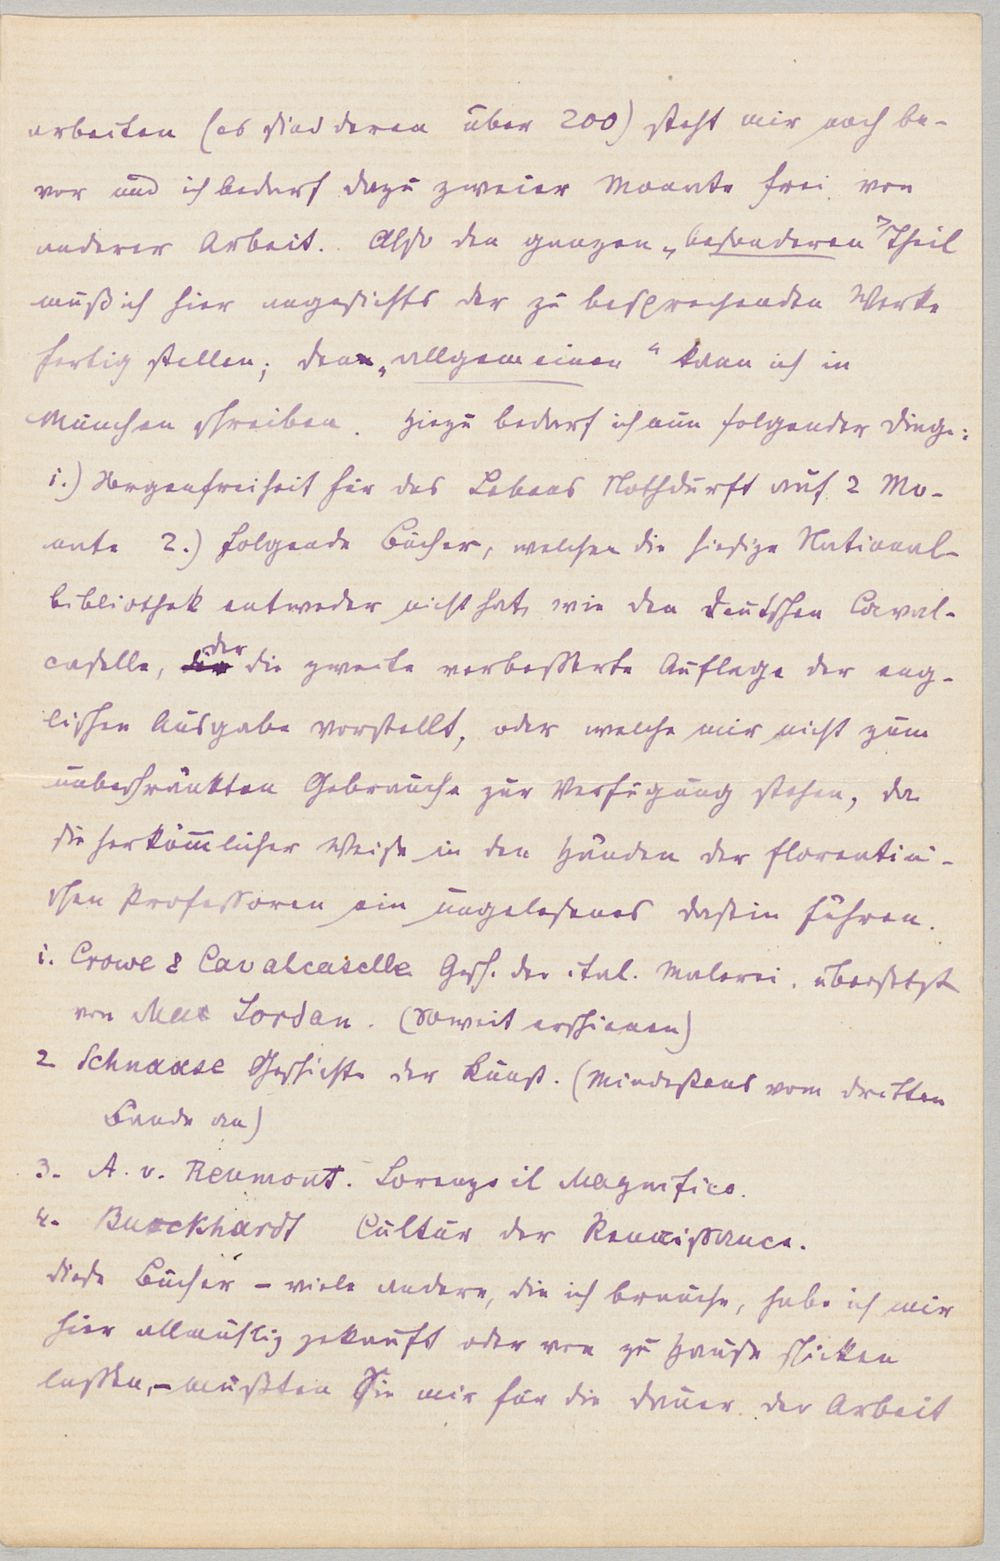 arbeiten (es sind deren über 200) steht mir noch be-
vor und ich bedarf dazu zweier Monate frei von
anderer Arbeit. Also den ganzen „besonderen" Theil
muß ich hier angesichts der zu besprechenden Werke
fertig stellen; den „allgemeinen" kann ich in
München schreiben. Hiezu bedarf ich nun folgender Dinge:
1.) Sorgenfreiheit für des Lebens Nothdurft auf 2 Mo-
nate 2.) folgende Bücher, welche die hiesige National-
bibliothek entweder nicht hat, wie den deutschen Caval-
caselle, der die zweite verbesserte Auflage der eng-
lischen Ausgabe vorstellt, oder welche mir nicht zum
unbeschränkten Gebrauche zur Verfügung stehen, da
sie herkömmlicher Weise in den Händen der florentini-
schen Professoren ein ungelesenes Dasein führen.
1. Crowe & Cavalcaselle Gesch. der ital. Malerei. übersetzt
von Max Jordan. (soweit erschienen)
2 Schnaase Geschichte der Kunst. (Mindestens vom dritten
Bande an)
3. A. v. Reumont. Lorenzo il Magnifico.
4. Burckhardt Cultur der Renaissance.
Diese Bücher – viele andere, die ich brauche, habe ich mir
hier allmählig gekauft oder von zu Hause schicken
lassen, – müßten Sie mir für die Dauer der Arbeit